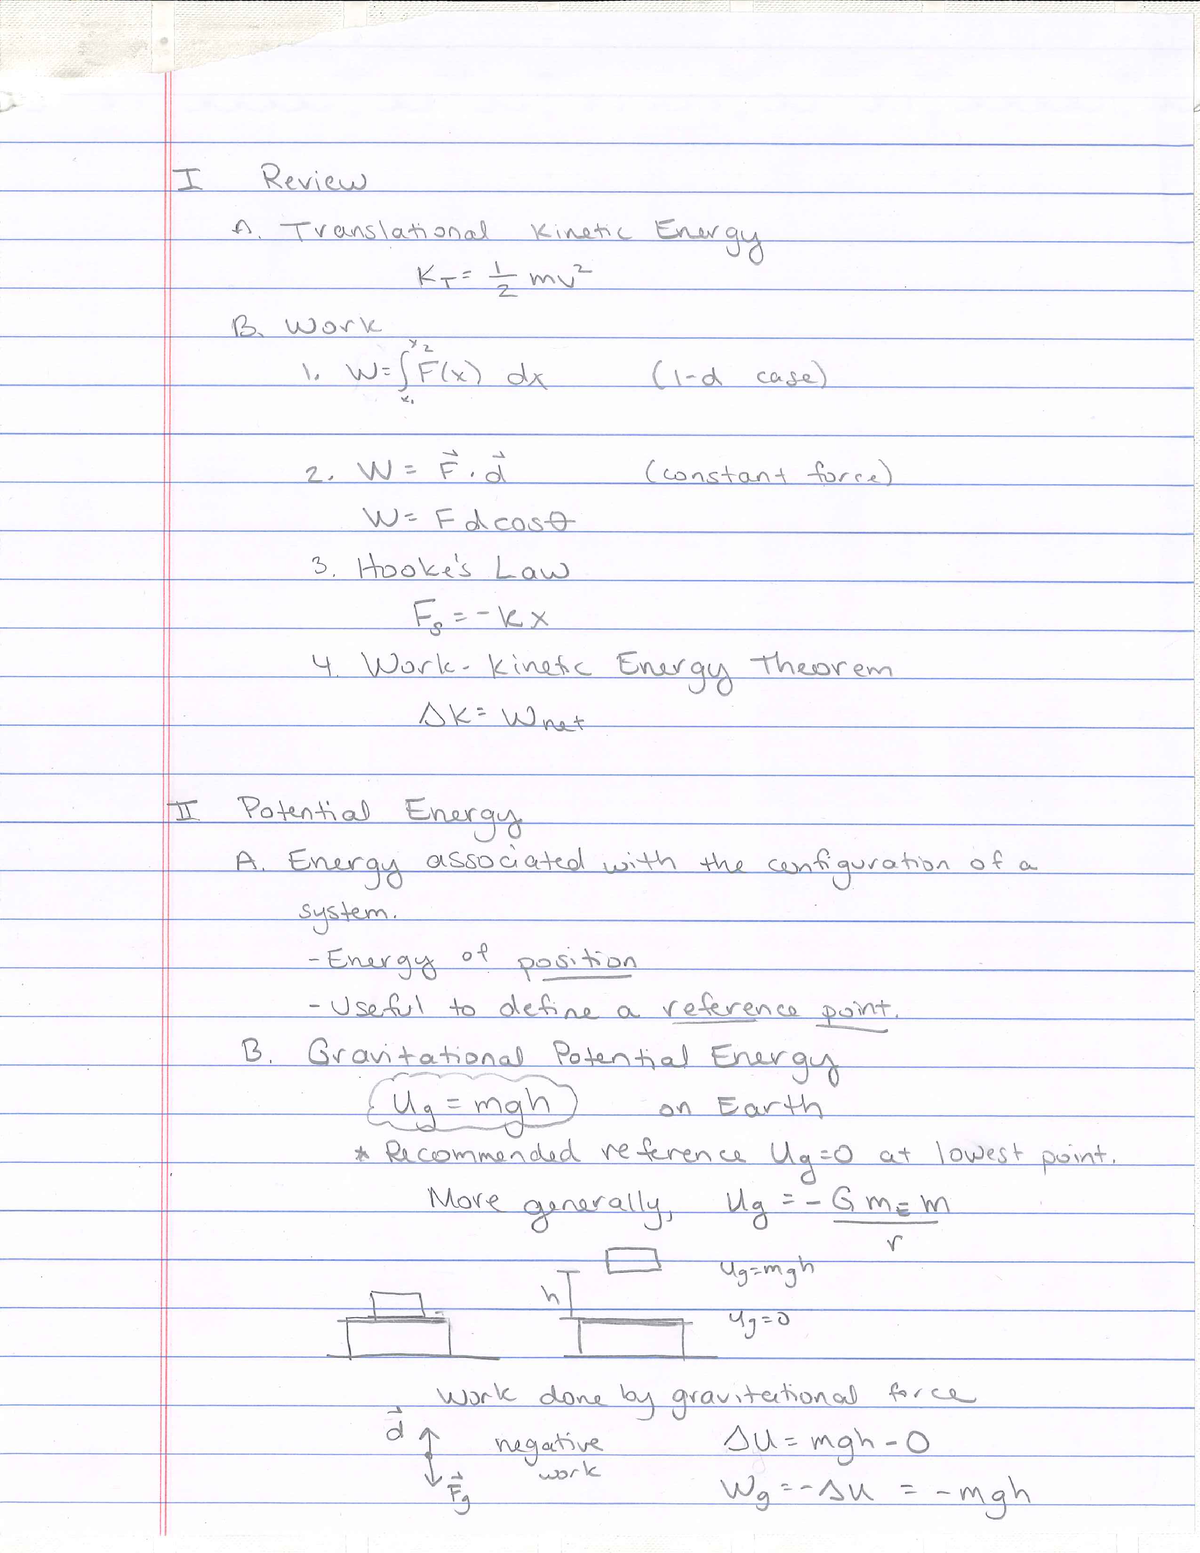 I Review
A. Translational Kinetic Energy
K_T = 1/2 mv²
B. Work
1. W = ∫_{x₁}^{x₂} F(x) dx (1-d case)
2. W = F⃗ · d⃗ (constant force)
W = F d cos θ
3. Hooke's Law
F_s = -kx
4. Work-Kinetic Energy Theorem
ΔK = W_net
II Potential Energy
A. Energy associated with the configuration of a
system.
- Energy of position
- Useful to define a reference point.
B. Gravitational Potential Energy
U_g = mgh on Earth
* Recommended reference U_g = 0 at lowest point.
More generally, U_g = - G m_E m / r
U_g = mgh
h
U_g = 0
Work done by gravitational force
d⃗ negative ΔU = mgh - 0
work
F⃗_g W_g = -ΔU = -mgh